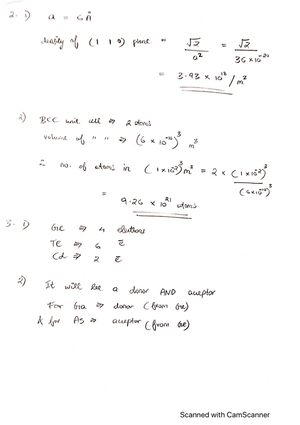 2. 1) a = 6 Å
density of (1 1 0) plane = √2 / a² = √2 / 36 × 10⁻²⁰
= 3.93 × 10¹⁸ / m²
2) BCC unit cell ⇒ 2 atoms
volume of " " ⇒ (6 × 10⁻¹⁰)³ m³
∴ no. of atoms in (1 × 10⁻²)³ m³ = 2 × (1 × 10⁻²)³ / (6 × 10⁻¹⁰)³
= 9.26 × 10²¹ atoms
3. 1) Ge ⇒ 4 electrons
Te ⇒ 6 e̅
Cd ⇒ 2 e̅
2) It will be a donor AND acceptor
For Ga ⇒ donor (from Ge)
& for AS ⇒ acceptor (from Ge)
Scanned with CamScanner